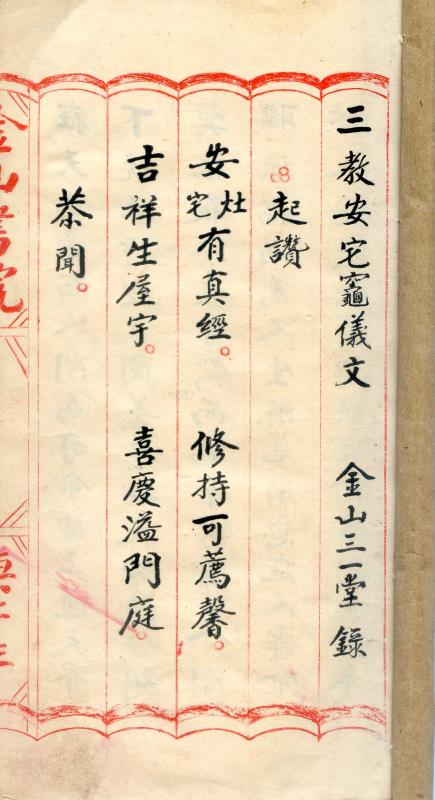 三教安宅竈儀文 金山三一堂錄
起讚
安灶宅有真經。 修持可薦馨。
吉祥生屋宇。 喜慶溢門庭。
恭聞。
金山書院